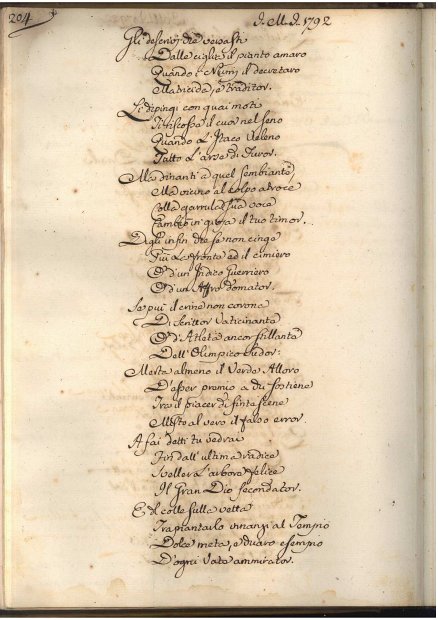 204
A. M. D. 1792
Gli descrivi che versasti
Dalle ciglia il pianto amaro
Quando i Numi il decretaro
Matricida, e traditor.
Li dipingi con quai moti
Ti riscosse il cuor nel seno
Quando l'Itaco veleno
Tutto l'arse di furor.
Ma dinanti a quel sembiante,
Ma vicino al colpo atroce
Colla garrula sua voce
Cambio in gioja il tuo timor.
Digli infin che se non cinge
Più la fronte ed il cimiero
O d'un Indico Guerriero
O d'un Affro domator.
Se più il crine non corona
Di Scrittor Vaticinante
O d'Atleta ancor stillante
Dell'Olimpico Sudor:
Merta almeno il Verde Alloro
D'esser premio a chi sostiene
Tra il piacer di finte scene
Misto al vero il falso error.
A fai detti tu vedrai
Fin dall'ultima radice
Sveller l'arbore felice
Il Gran Dio fecondator.
E del colle sulla vetta
Trapiantarlo innanzi al Tempio
Dolce meta, e chiaro esempio
D'ogni Vate ammirator.